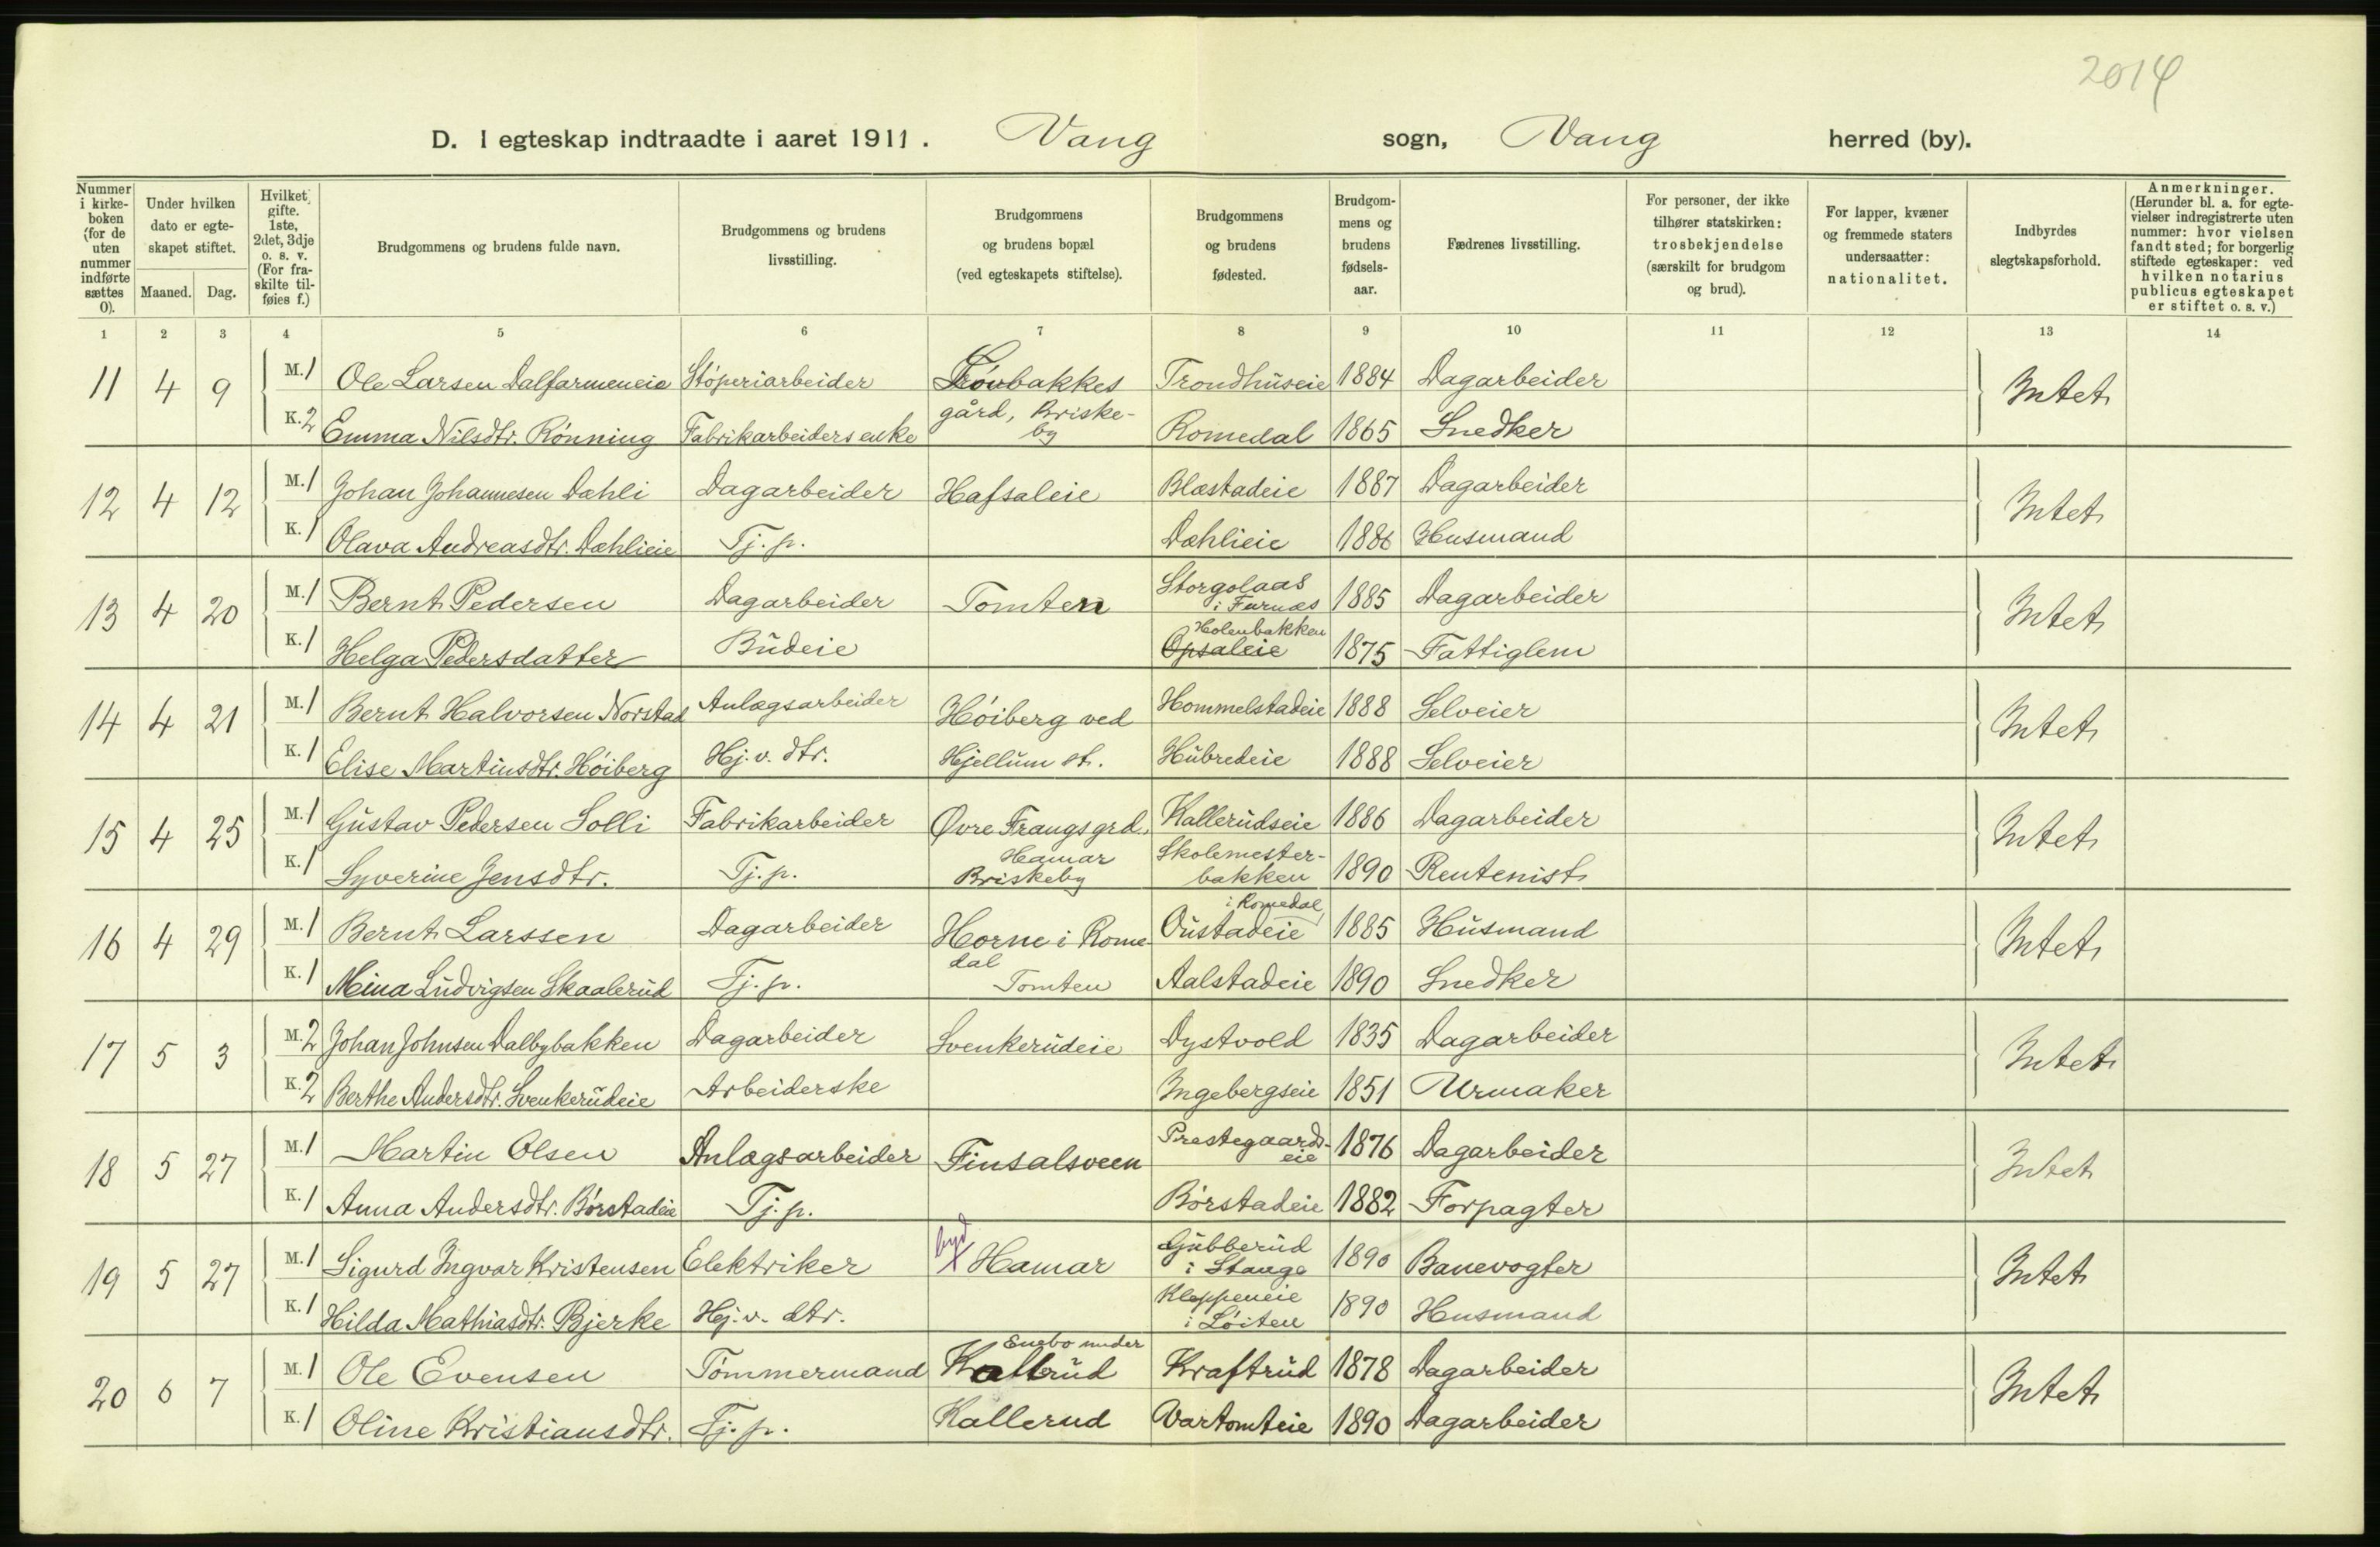 2014
D. I egteskap indtraadte i aaret 1911. Vang sogn, Vang herred (by).
Nummer i kirkeboken (for de uten nummer indførte sættes 0).
Under hvilken dato er egteskapet stiftet.
Maaned. Dag.
Hvilket gifte. 1ste, 2det, 3dje o. s. v. (For fraskilte tilføies f.)
Brudgommens og brudens fulde navn.
Brudgommens og brudens livsstilling.
Brudgommens og brudens bopæl (ved egteskapets stiftelse).
Brudgommens og brudens fødested.
Brudgommens og brudens fødselsaar.
Fædrenes livsstilling.
For personer, der ikke tilhører statskirken: trosbekjendelse (særskilt for brudgom og brud).
For lapper, kvæner og fremmede staters undersaatter: nationalitet.
Indbyrdes slegtskapsforhold.
Anmerkninger. (Herunder bl. a. for egtevielser indregistrerte uten nummer: hvor vielsen fandt sted; for borgerlig stiftede egteskaper: ved hvilken notarius publicus egteskapet er stiftet o. s. v.)
1 2 3 4 5 6 7 8 9 10 11 12 13 14
11 4 9 M. 1 Ole Larsen Dalfarmeneie Støperiarbeider Frøvbakkes Trondhuseie 1884 Dagarbeider Intet
K. 2 Emma Nilsdtr. Rønning Fabrikarbeiders enke gård, Briskeby Romedal 1865 Snedker
12 4 12 M. 1 Johan Johannesen Dæhli Dagarbeider Hafsaleie Blæstadeie 1887 Dagarbeider Intet
K. 1 Olava Andreasdtr. Dæhlieie Tj. p. Dæhlieie 1886 Husmand
13 4 20 M. 1 Bernt Pedersen Dagarbeider Tomten Storgolaas i Furnæs 1885 Dagarbeider Intet
K. 1 Helga Pedersdatter Budeie Holenbakken Opsaleie 1875 Fattiglem
14 4 21 M. 1 Bernt Halvorsen Norstad Anlægsarbeider Høiberg ved Hommelstadeie 1888 Selveier Intet
K. 1 Elise Martinsdtr. Høiberg Hj. v. dtr. Hjellum st. Hubredeie 1888 Selveier
15 4 25 M. 1 Gustav Pedersen Solli Fabrikarbeider Øvre Frangsgrd., Hamar Kallerudseie 1886 Dagarbeider Intet
K. 1 Syverine Jensdtr. Tj. p. Briskeby Skolemesterbakken 1890 Rentenist
16 4 29 M. 1 Bernt Larssen Dagarbeider Horne i Romedal Oustadeie i Romedal 1885 Husmand Intet
K. 1 Mina Ludvigsen Skaalerud Tj. p. Tomten Aalstadeie 1890 Snedker
17 5 3 M. 2 Johan Johnsen Dalbybakken Dagarbeider Svenkerudeie Dystvold 1835 Dagarbeider Intet
K. 2 Berthe Andersdtr. Svenkerudeie Arbeiderske Ingebergseie 1851 Urmaker
18 5 27 M. 1 Martin Olsen Anlægsarbeider Finsalsveen Prestegaardseie 1876 Dagarbeider Intet
K. 1 Anna Andersdtr. Børstadeie Tj. p. Børstadeie 1882 Forpagter
19 5 27 M. 1 Sigurd Ingvar Kristensen Elektriker byd x Hamar Gubberud i Stange 1890 Banevogter Intet
K. 1 Hilda Mathiasdtr. Bjerke Hj. v. dtr. Kleppeneie i Løiten 1890 Husmand
20 6 7 M. 1 Ole Evensen Tømmermand Enebo under Kallerud Kraftrud 1878 Dagarbeider Intet
K. 1 Oline Kristiansdtr. Tj. p. Kallerud Vartomteie 1890 Dagarbeider